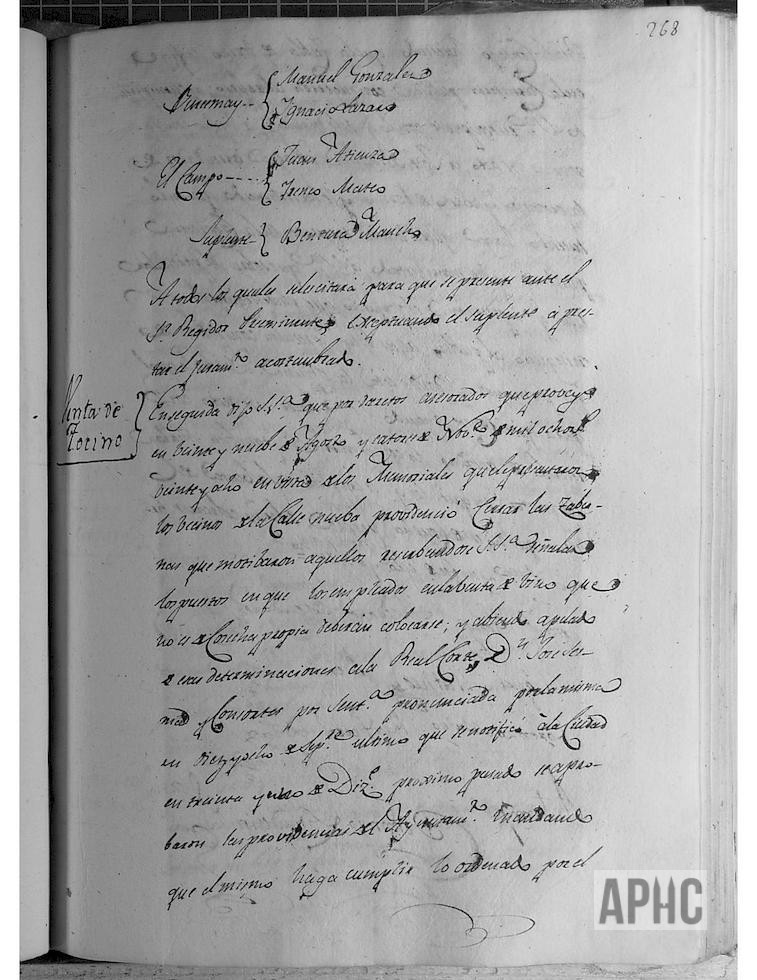 268
Benemay -- { Manuel Gonzalez
Ignacio Lazaro
El Campo ---- { Juan Atienza
Yreneo Mateo
Suplente } Bentura March
A todos los quales se les citará para que se presente ante el
Sr. Regidor Preeminente, exceptuando el suplente á pres-
tar el juramto. acostumbrado.
Venta de
Tocino }
Enseguida dijo S.Sa. que por decretos asesorados que proveyó
en veinte y nuebe de Agosto y catorce de Nobe. de mil ochocs.
veinte y ocho en virtud de los Memoriales que le presentaron
los vecinos de la Calle nueba providenció Cerrar las Taber-
nas que motibaron aquellos reserbandose S.Sa. señalar
los puestos en que los empleados en la benta de Vino que
no es de Cosecha propia deberian colocarse; y abiendo apelado
de esas determinaciones á la Real Corte, Dn. José
y Consortes por Senta. pronunciada por la misma
en diez y ocho de Sepe. ultimo que se notificó á la Ciudad
en treinta y uno de Dize. proximo pasado se apro-
baron las providencias del Ayuntamto. mandando
que el mismo haga cumplir lo ordenado por el
APHC